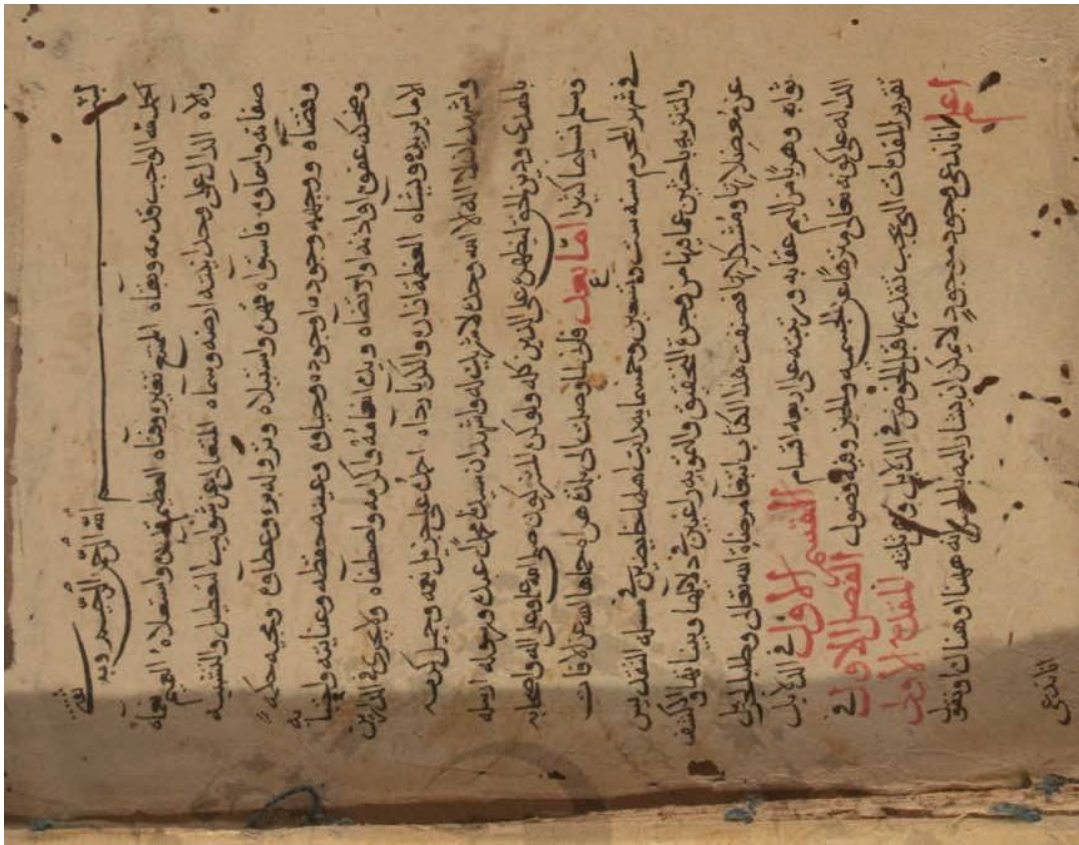 بسم الله الرحمن الرحيم وبه ثقتي
الحمد لله الواجب قدمه وبقاه الممتنع تغيره وفناه العظيم قدره واستعلاه العميم نعماه
والاه الدال على وحدانيته ارضه وسماه المتعالي عن شوايب التعطيل والتشبيه
صفاته واسماوه فاستواه قهره واستيلاه ونزوله بره وعطاوه ومجيه حكمه
وقضاه ووجهه وجوده او جوده وحباوه وعينه حفظه وعنايته واجتباه
وضحكه عفوه او اذنه وارتضاه ويده انعامه واكرمه واصطفاه ولا يجري في الدارين
الا ما يريده ويشاه العظمة ازاره والكبريا رداه احمده على جزيل نعمه وجميل كرمه
واشهد ان لا اله الا الله وحده لا شريك له واشهد ان سيدنا محمدا عبده ورسوله ارسله
بالهدى ودين الحق ليظهره على الدين كله ولو كره المشركون صلى الله عليه وعلى اله واصحابه
وسلم تسليما كثيرا اما بعد فاني لما وصلت الى بلدة هراه حماها الله عن الافات
في شهر المحرم سنه ست وتسعين وخمسمايه رايت اهلها خايضين في مسله التقديس
والتنزيه باحثين عما فيها من وجوه التحقيق والتمويه راغبين في دلايلها وبيناتها والكشف
عن معضلاتها ومشكلاتها فصنفت هذا الكتاب ابتغا مرضاة الله تعالى وطلبا لجزيل
ثوابه وهربا من اليم عقابه ورتبته على اربعه اقسام القسم الاول في الدلايل
الداله على كونه تعالى منزها عن الجسميه والحيز وفيه فصول الفصل الاول في
تقرير المقدمات التي يجب تقديمها قبل الخوض في الدلايل وهي ثلثه المقدمة الاولى
اعلم انا ندعي وجود موجود لا يمكن ان يشار اليه بالحس انه ههنا او هنالك او نقول
انا ندعي